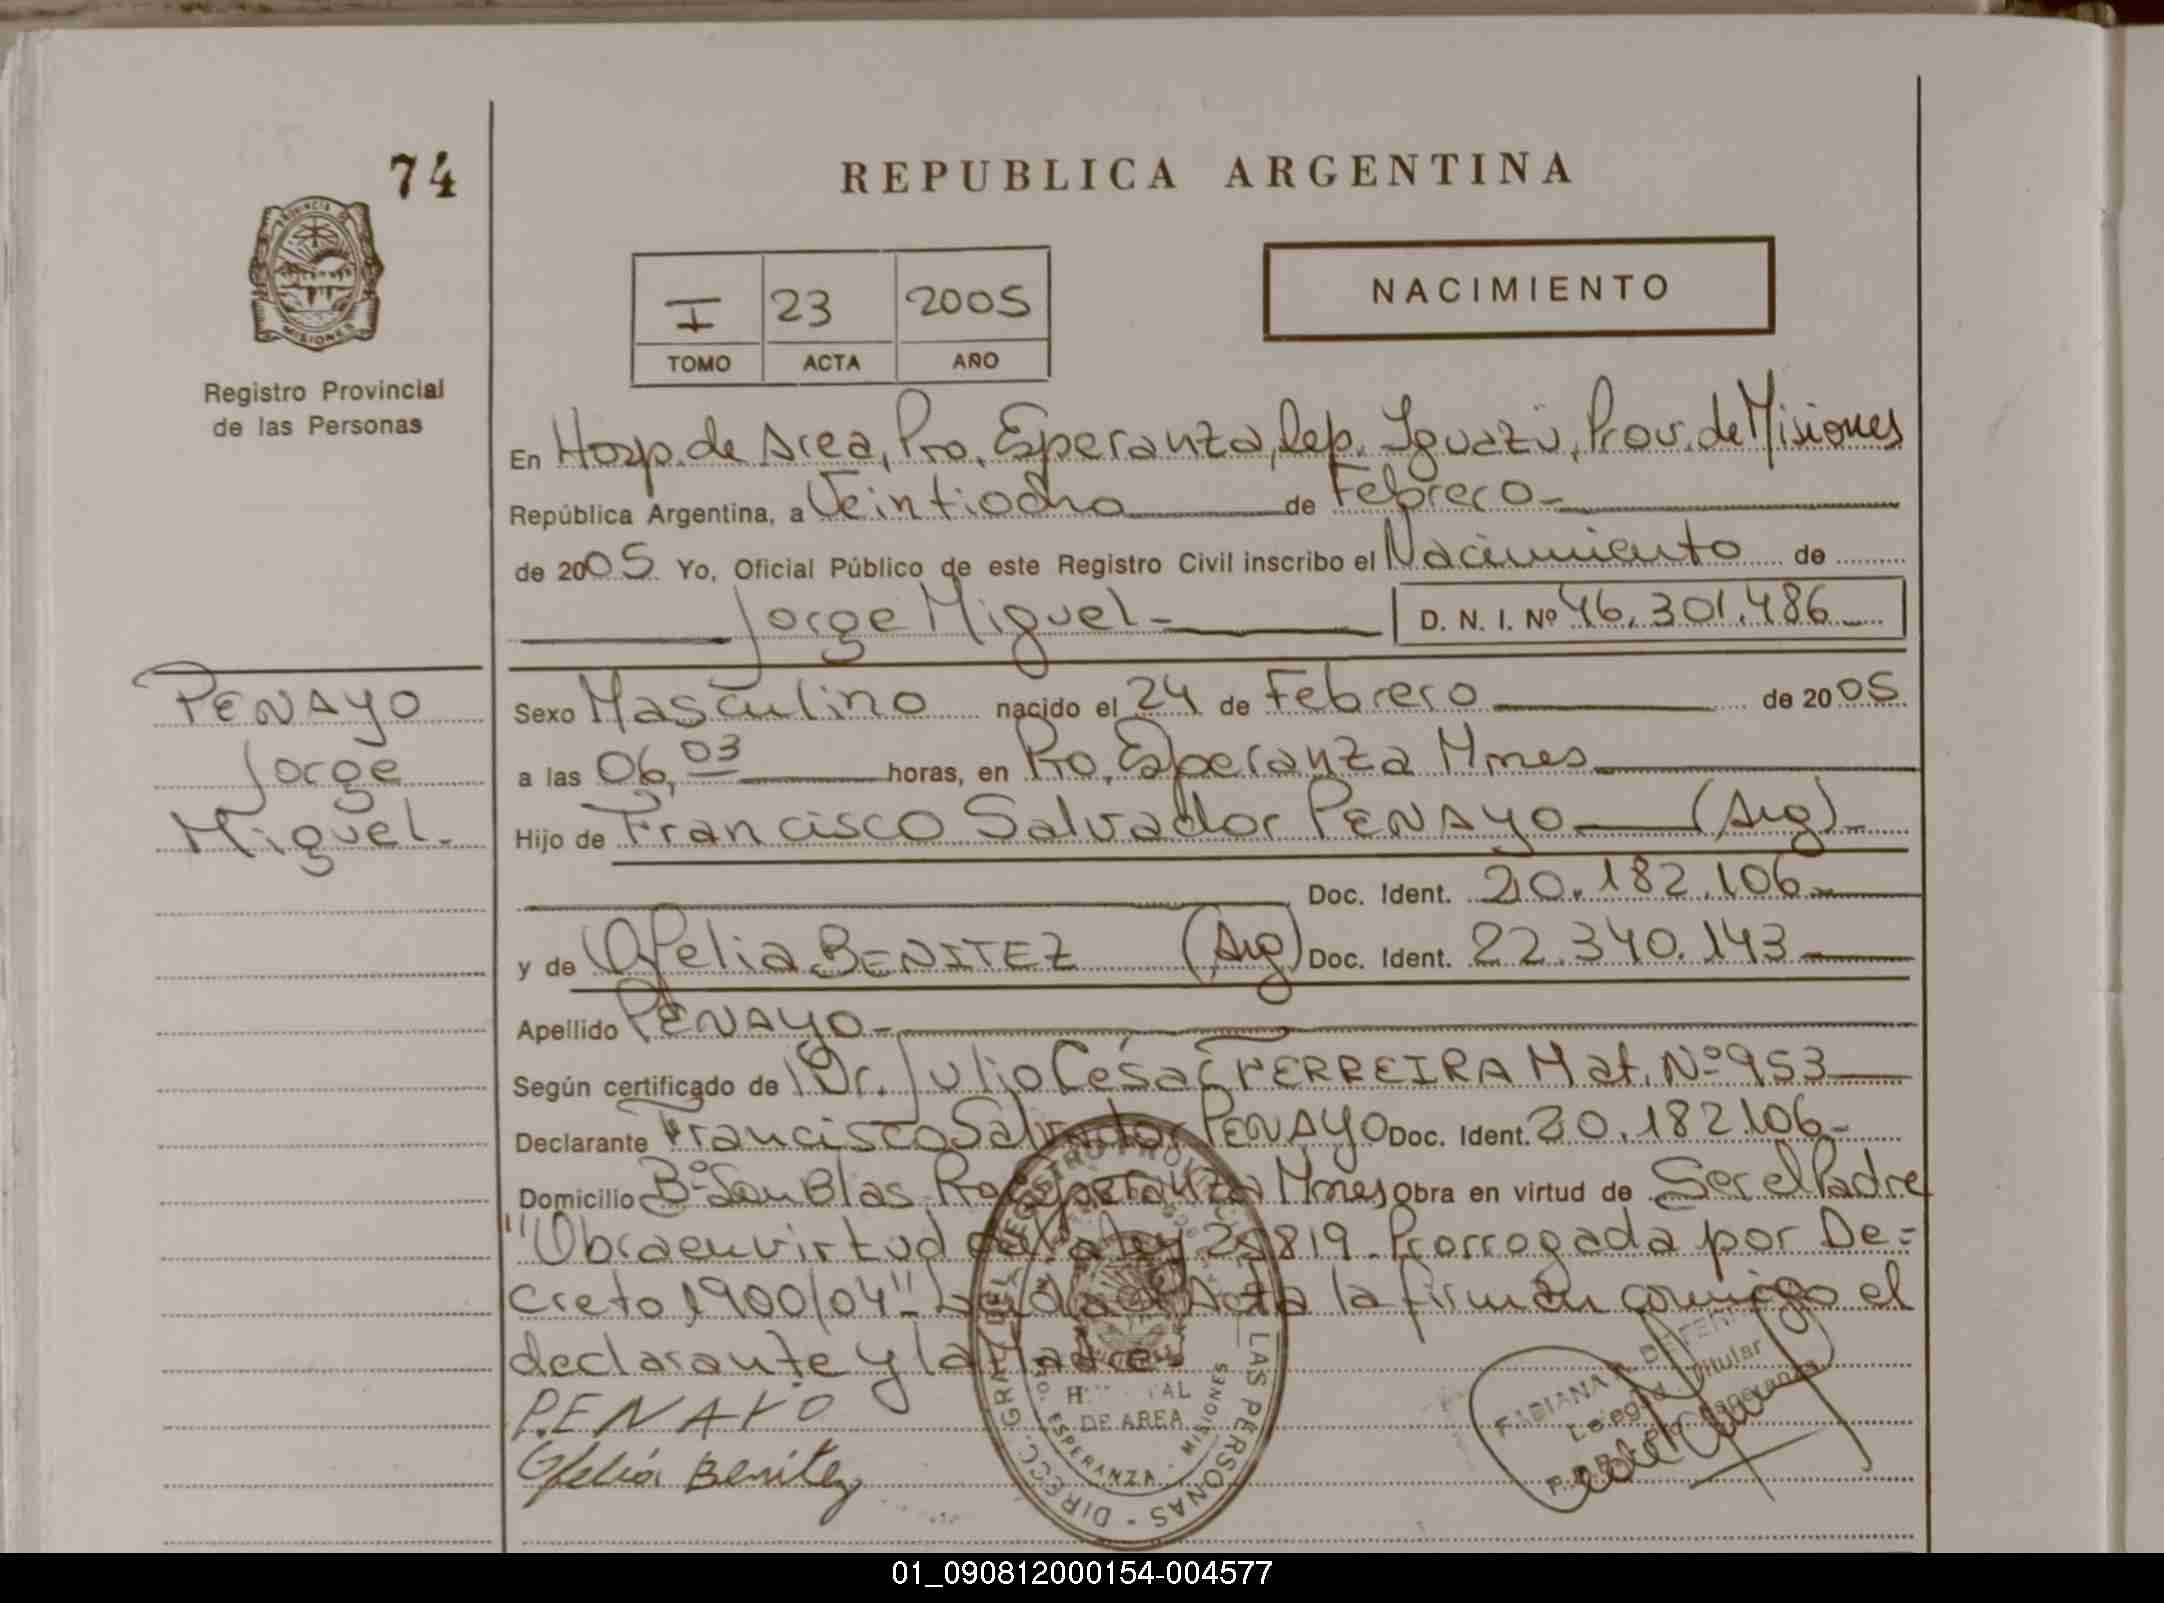 74
REPUBLICA ARGENTINA
PROVINCIA DE MISIONES
Registro Provincial
de las Personas
I 23 2005
TOMO ACTA AÑO
NACIMIENTO
En Hosp. de Area, Pto. Esperanza, Dep. Iguazú, Prov. de Misiones
República Argentina, a Veintiocho de Febrero-
de 2005 Yo, Oficial Público de este Registro Civil inscribo el Nacimiento de
Jorge Miguel- D. N. I. Nº 46.301.486
PENAYO
Jorge
Miguel.-
Sexo Masculino nacido el 24 de Febrero de 2005
a las 06,03 horas, en Pto. Esperanza Mnes
Hijo de Francisco Salvador PENAYO (Arg)-
Doc. Ident. 20.182.106-
y de Ofelia BENITEZ (Arg) Doc. Ident. 22.340.143
Apellido PENAYO-
Según certificado de Dr. Julio César FERREIRA Mat. Nº 953
Declarante Francisco Salvador PENAYO Doc. Ident. 20.182.106-
Domicilio Bº San Blas Pto Esperanza Mnes Obra en virtud de Ser el Padre
"Obra en virtud de la Ley 25819. Prorrogada por De=
creto 1900/04"- Leida el Acta la firman conmigo el
declarante y la Madre
PENAYO
Ofelia Benitez
DIRECC. GRAL. DEL REGISTRO PROVINCIAL DE LAS PERSONAS
DE AREA
PTO. ESPERANZA - MISIONES
FABIANA
Titular
Esperanza
01_090812000154-004577